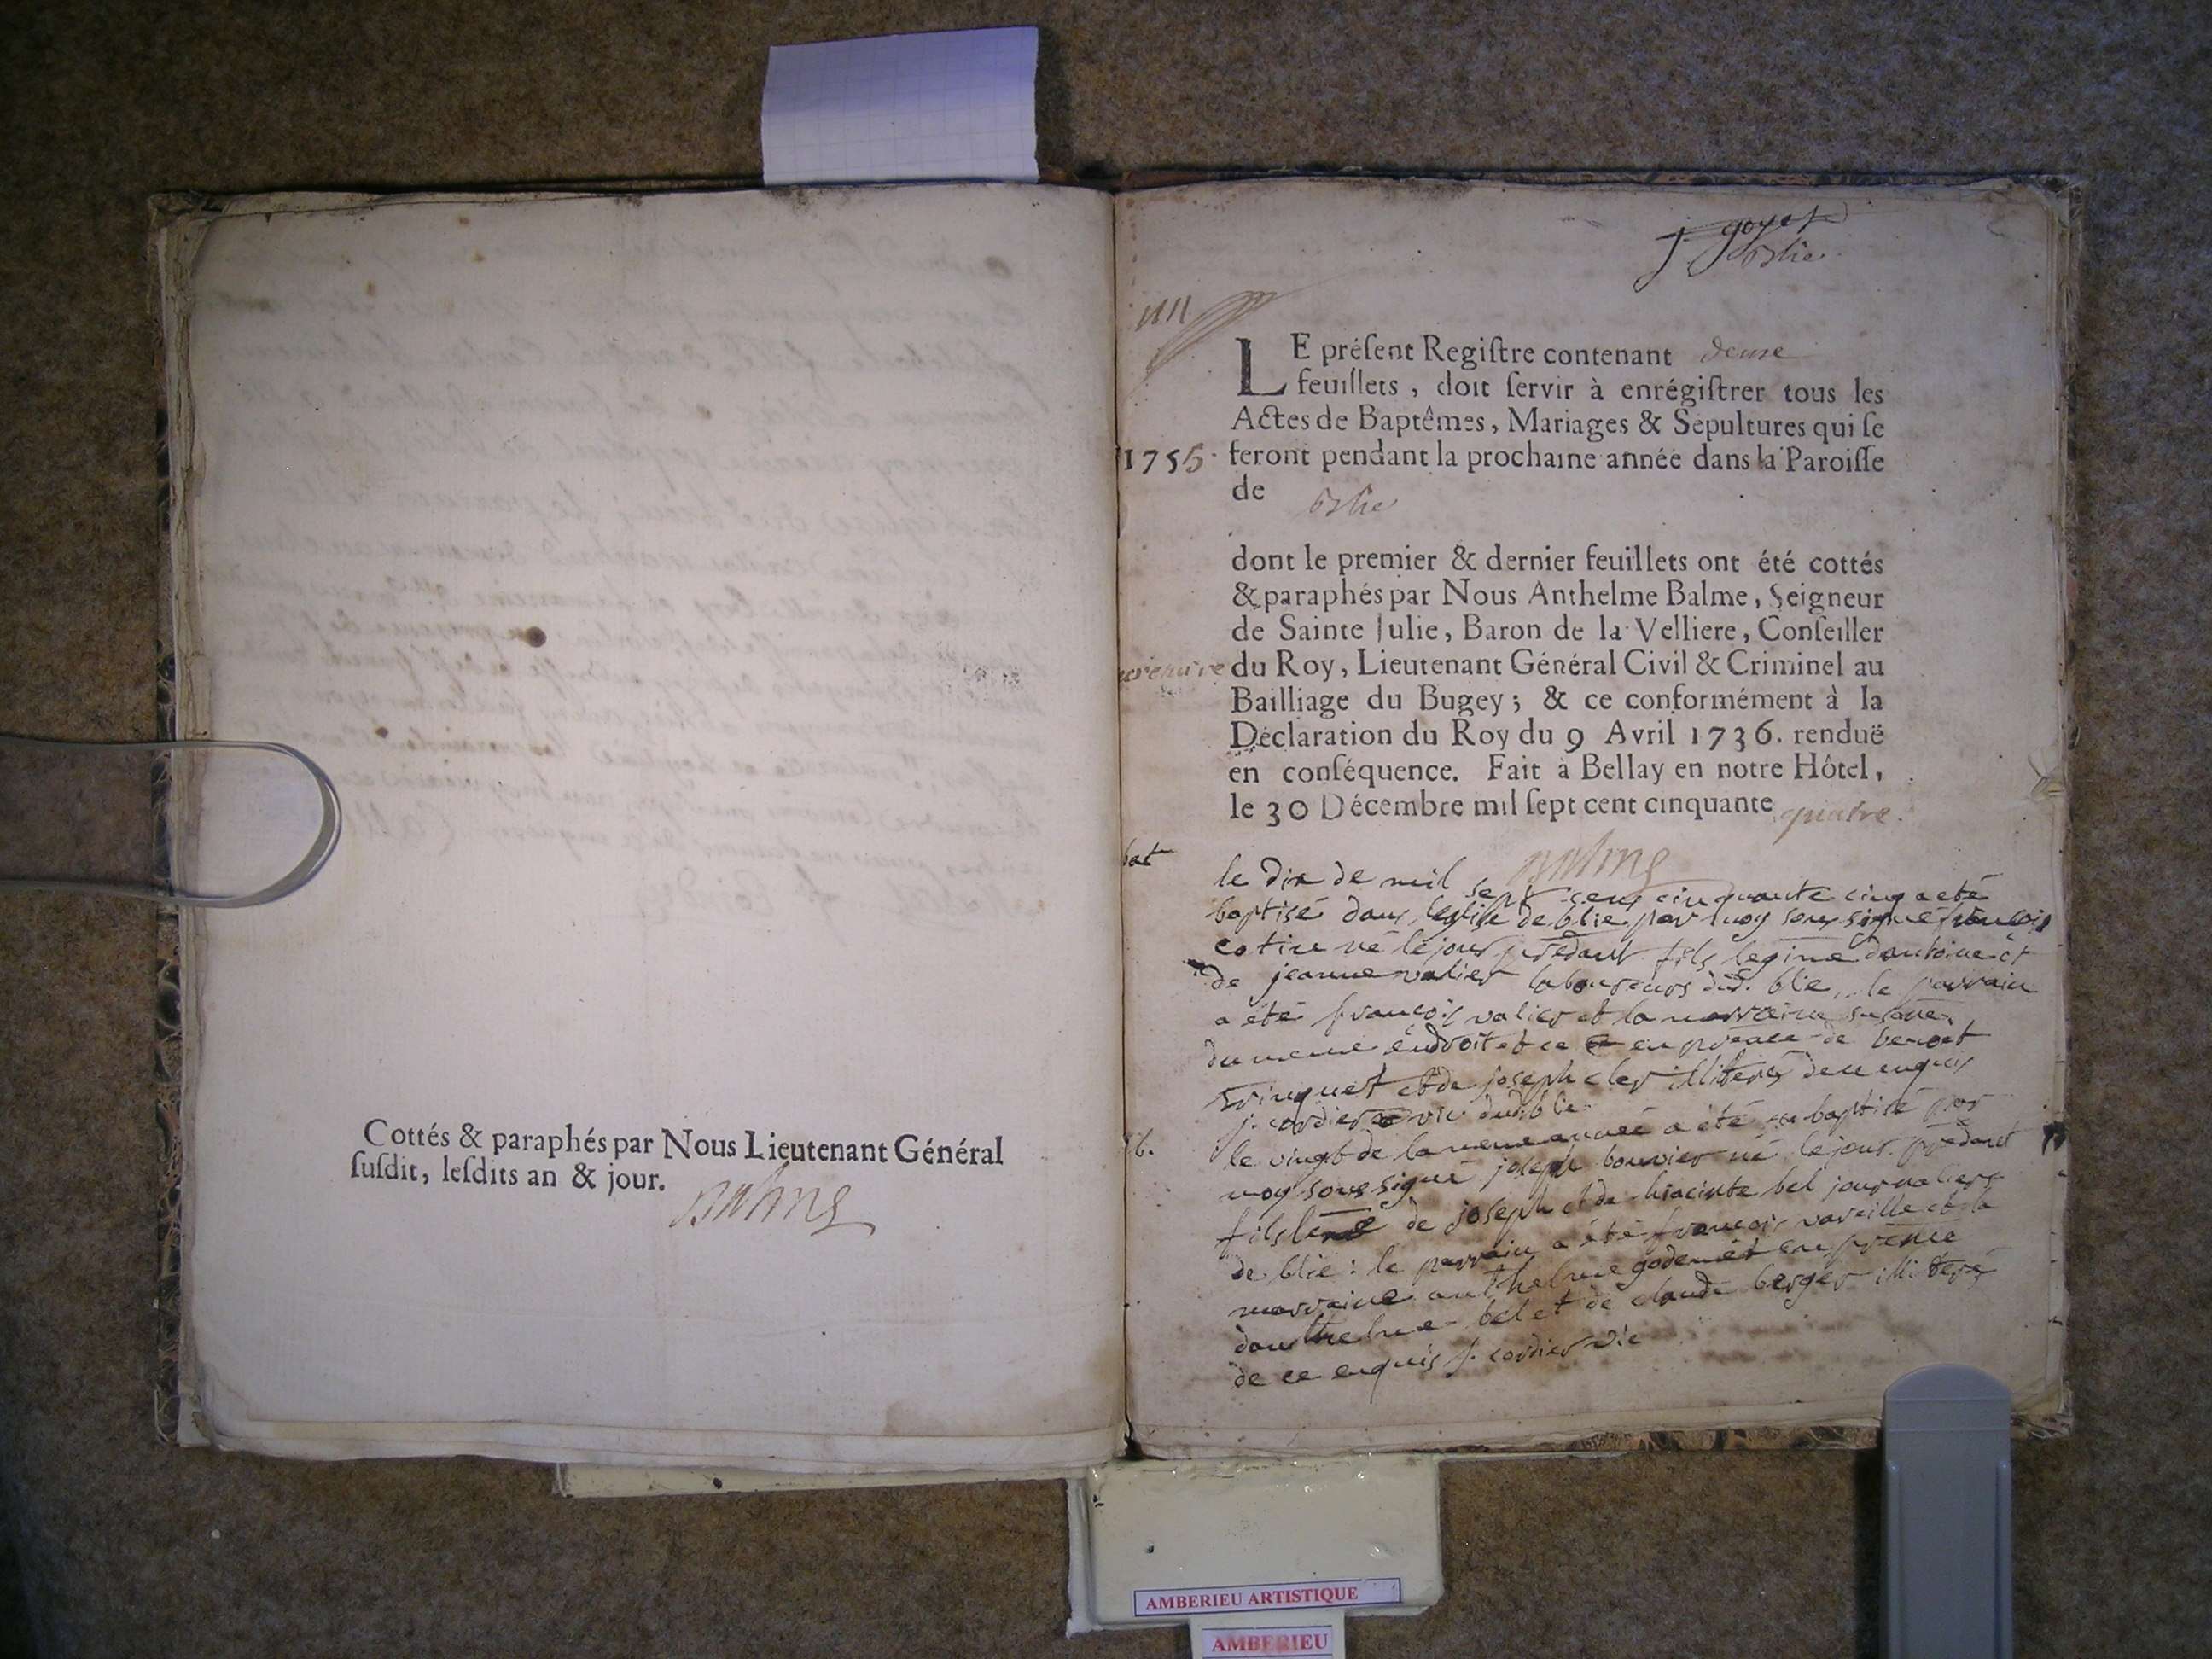 Cottés & paraphés par Nous Lieutenant Général
ſuſdit, leſdits an & jour.
Balme
J. goyet
Blie
LE préſent Regiſtre contenant
feuillets, doit ſervir à enrégiſtrer tous les
Actes de Baptêmes, Mariages & Sepultures qui ſe
1755. feront pendant la prochaine année dans la Paroiſſe
de Blie
dont le premier & dernier feuillets ont été cottés
& paraphés par Nous Anthelme Balme, Seigneur
de Sainte Julie, Baron de la Velliere, Conſeiller
du Roy, Lieutenant Général Civil & Criminel au
Bailliage du Bugey; & ce conformément à la
Déclaration du Roy du 9 Avril 1736. renduë
en conſéquence. Fait à Bellay en notre Hôtel,
le 30 Décembre mil ſept cent cinquante quatre.
Balme
bat
le dix de mil sept cens cinquante cinq a eté
baptisé dans leglise de blie par moy sous signé francois
cotin né le jour prédant fils legime dantoine et
de jeanne valier laboureurs dud. blie, le parrain
a été francois valier et la marraine
du meme endroit et ce en présence de benoit
trinquet et de joseph cler illiterés de ce enquis
j. cordier vic dud. blie
b. le vingt de la meme année a été baptisé par
moy sous signé joseph bouvier né le jour prédant
fils de joseph et de hiacinte bel journaliers
de blie: le parrain a été francois vareille et la
marraine anthelme godemet en présence
danthelme bel et de claude berger illiteré
de ce enquis j. cordier vic
AMBERIEU ARTISTIQUE
AMBERIEU